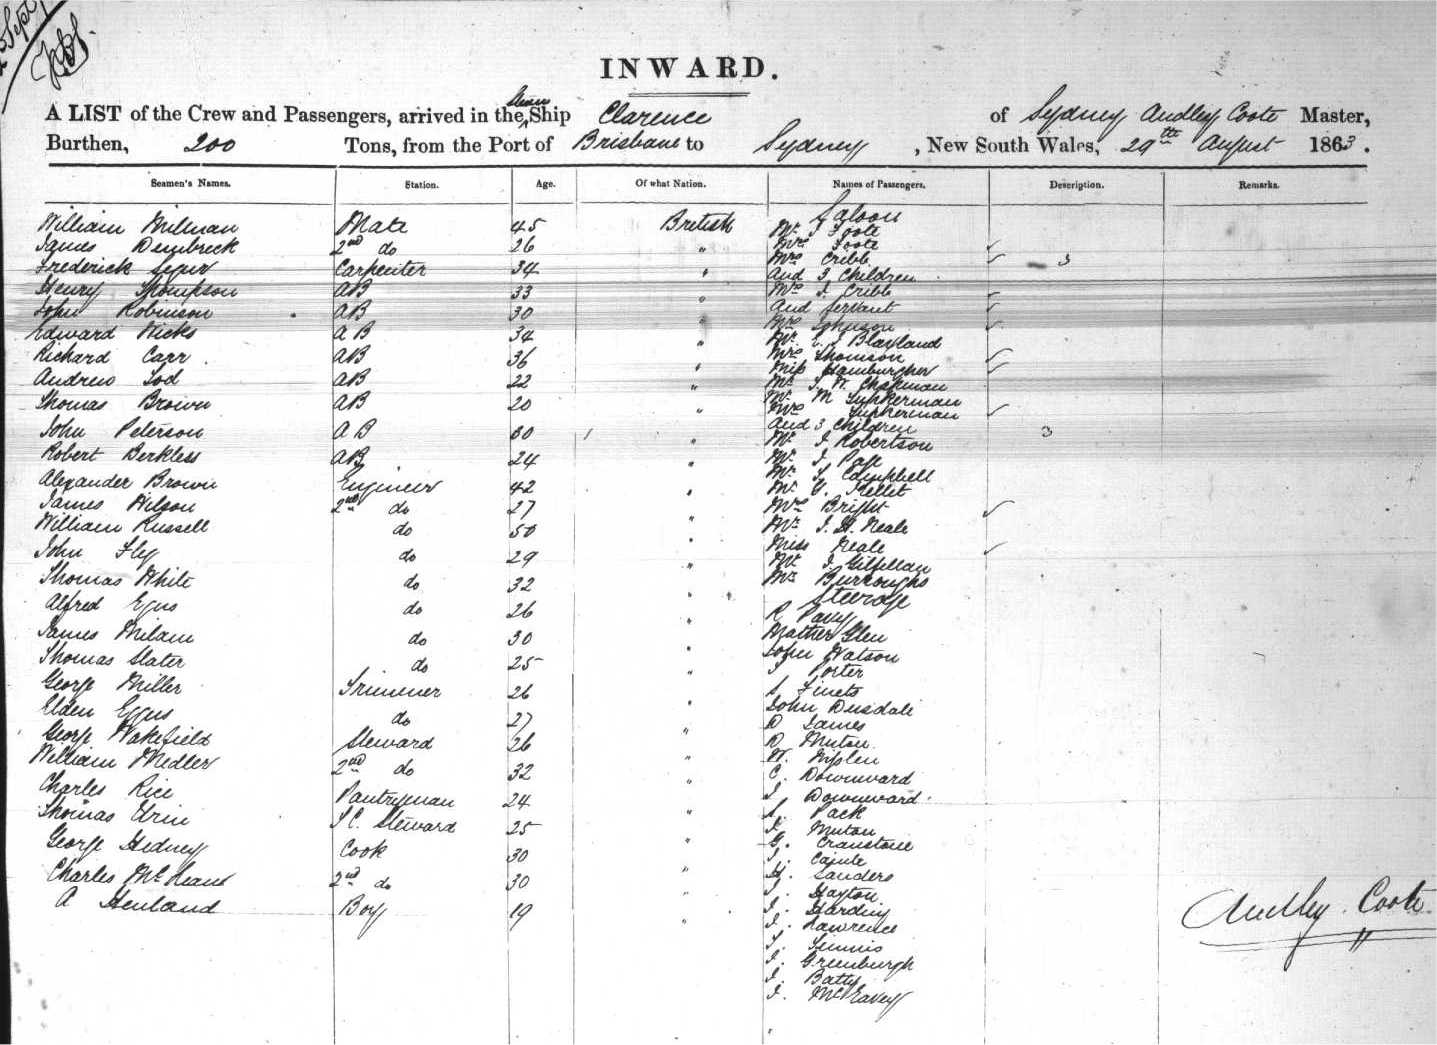 Sept
INWARD.
A LIST of the Crew and Passengers, arrived in the Steam Ship Clarence of Sydney Audley Coote Master,
Burthen, 200 Tons, from the Port of Brisbane to Sydney, New South Wales, 29th August 1863.
Seamen's Names. Station. Age. Of what Nation. Names of Passengers. Description. Remarks.
Saloon
William Milman Mate 45 British Mr J Foote
James Dembreck 2nd do 26 " Mrs Foote
Frederick 34 Carpenter " Mrs Cribb 3
and 3 Children
Henry Thompson AB 33 " Mrs J. Cribb
John Robinson AB 30 " and Servant
Edward Hicks AB 34 " Mrs Johnson
Mr Blaxland
Richard Carr AB 36 " Mrs Thomson
Miss Hamburgher
Andrew Tod AB 22 " Mr T. W. Chapman
Mr M
Thomas Brown AB 20 " Mrs
and 3 Children 3
John Peterson AB 30 " Mr J. Robertson
Robert Berkless AB 24 " Mr J.
Mr T. Campbell
Alexander Brown Engineer 42 " Mr G. Kellet
James Wilson 2nd do 27 " Mrs Bright
William Russell do 50 " Mr J. H. Neale
Miss Neale
John Fly do 29 " Mr J. Gilfillan
Thomas White do 32 " Mr Burroughs
Steerage
Alfred Egus do 26 " R Pavy
James Milam do 30 " Mather Glen
John Watson
Thomas Slater do 25 " J Porter
George Miller Trimmer 26 " S
John Dusdale
Elden Eggus do 27 " D James
George Wakefield Steward 26 " R Muton
W.
William Medler 2nd do 32 " C. Downward
Charles Rice Pantryman 24 " J. Downward
S. Pack
Thomas Urin S.C. Steward 25 " J. Muton
George Hedney Cook 30 " G. Cranstone
J.
Charles McLean 2nd do 30 " H. Sanders
J. Hayton
A Henland Boy 19 " J. Harding
J. Lawrence
Audley Coote
J.
J. Greenburgh
J. Batty
J.